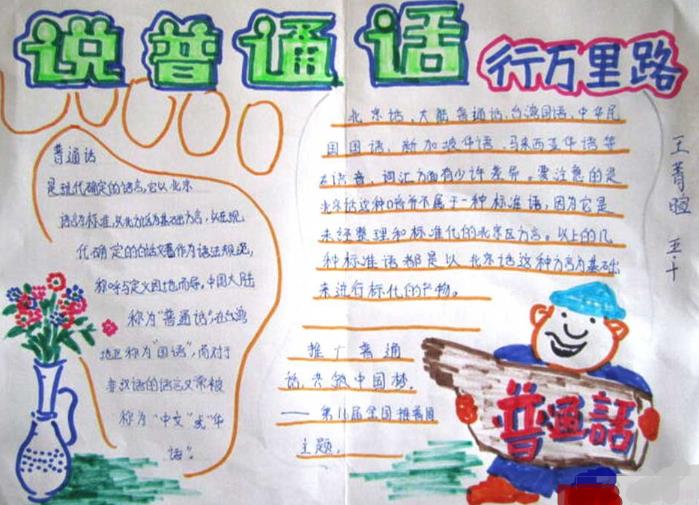 说普通话
行万里路
普通话
是现代确定的语言,它以北京
语音为标准,以北方话为基础方言,以在现
代确定的白话文著作为语法规范,
称呼与定义因地而异。中国大陆
称为“普通话”,在台湾
地区称为“国语”,而对于
非汉语的语言又常被
称为“中文”或“华
语”。
北京话、大陆普通话、台湾国语、中华民
国国语、新加坡华语、马来西亚华语等
在语音、词汇方面有少许差异。要注意的是
北京话这种口音并不属于一种标准语,因为它是
未经整理和标准化的北京区方言。以上的几
种标准语都是以北京话这种方言为基础
来进行标化的产物。
推广普通
话,共筑中国梦。
——第16届全国推普周
主题。
王菁
五·十
普通話